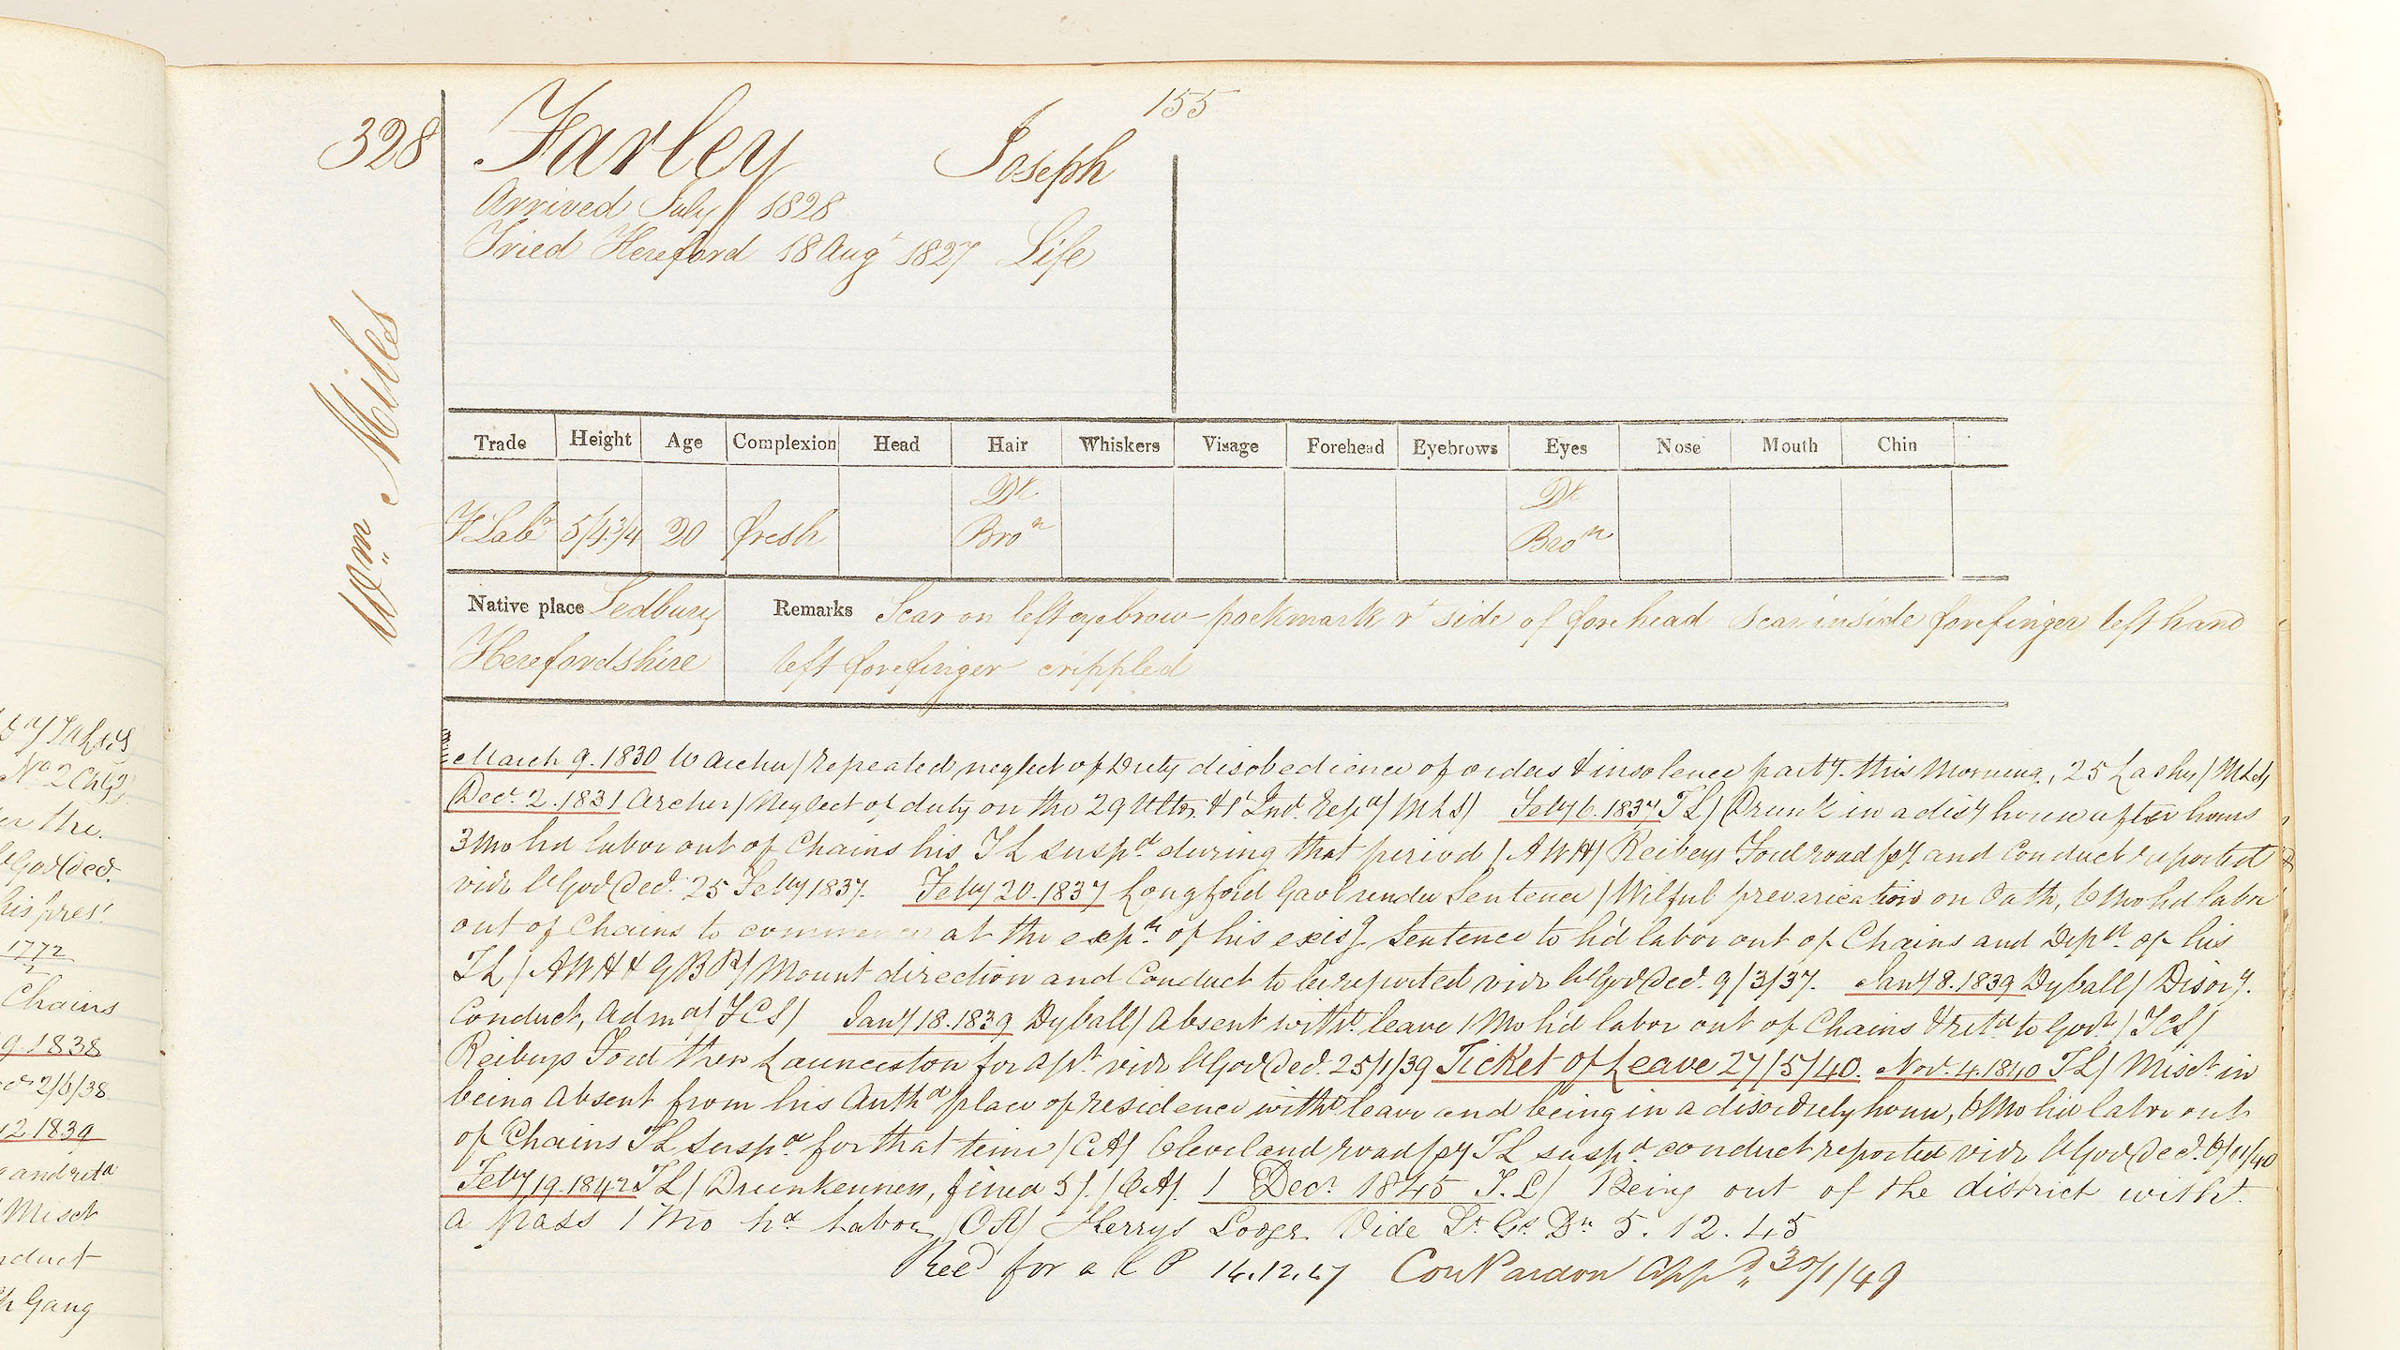 155
328 Farley Joseph
Arrived July 1828
Tried Hereford 18 Augt 1827 Life
Wm Miles
Trade Height Age Complexion Head Hair Whiskers Visage Forehead Eyebrows Eyes Nose Mouth Chin
Dk Dk
F Labr 5/4 3/4 20 fresh Bron Bron
Native place Ledbury Remarks Scar on left eyebrow pockmark rt side of forehead scar inside forefinger left hand
Herefordshire left forefinger crippled
March 9. 1830 W Archer/ repeated neglect of Duty disobedience of orders & insolence party. this Morning, 25 Lashes/
Decr. 2. 1831 Archer/ Neglect of duty on the 29 Ulto. & 1st Inst. Repd/ MLS/ Feby 6. 1837 TL/ Drunk in a disy house after hours
3 Mo hd labor out of Chains his TL suspd. during that period / AWH/ Reibeys Ford road py and Conduct reported
vide Lt Gov Decd. 25 Feby 1837. Feby 20. 1837 Longford Gaol under Sentence / Wilful prevarication on Oath, 6 Mo hd labor
out of Chains to commence at the expn. of his exisg Sentence to hd labor out of Chains and Depn. of his
TL / AWH & GBP/ Mount direction and Conduct to be reported vide Lt Gov Decd. 9/3/37. Jany 8. 1839 Dyball/ Disory.
Conduct, Admd/ TCS/ Jany 18. 1839 Dyball/ Absent witht. leave 1 Mo hd labor out of Chains & retd to Govt./ TCS/
Reibeys Ford then Launceston for apt. vide Lt Gov Decd. 25/1/39 Ticket of Leave 27/5/40. Novr. 4. 1840 TL/ Misct in
being Absent from his Authd place of residence witht leave and being in a disorderly house, 6 Mo hd labor out
of Chains TL suspd. for that time /CA/ Cleveland road py TL suspd. conduct reported vide Lt Gov Decd. 6/11/40
Feby 19. 1842 TL/ Drunkenness, fined 5/. /CA/. 1 Decr 1845 T.L/ Being out of the district witht.
a pass 1 Mo hd Labor /CA/ Kerrys Lodge Vide Lt Gs Dn 5. 12. 45
Recd for a C P 14.12.47 Con Pardon appd 30/1/49
No 2 Ch
er the.
his pres
1772
Chains
9. 1838
2/6/38
2 1839
and retd
Misct
nduct
Gang